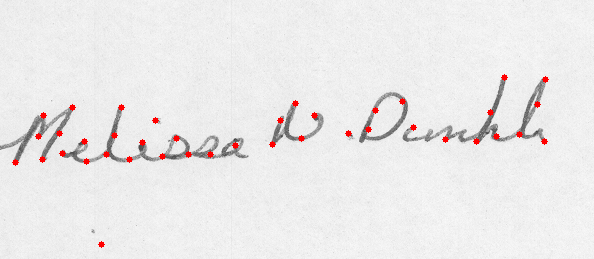 Melissa N Dunkle